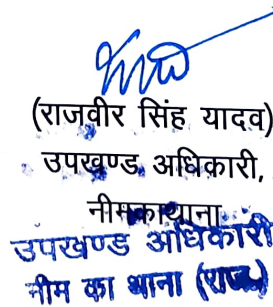 (राजवीर सिंह यादव)
उपखण्ड अधिकारी,
नीमकाथाना
उपखण्ड अधिकारी
नीम का थाना (राज.)